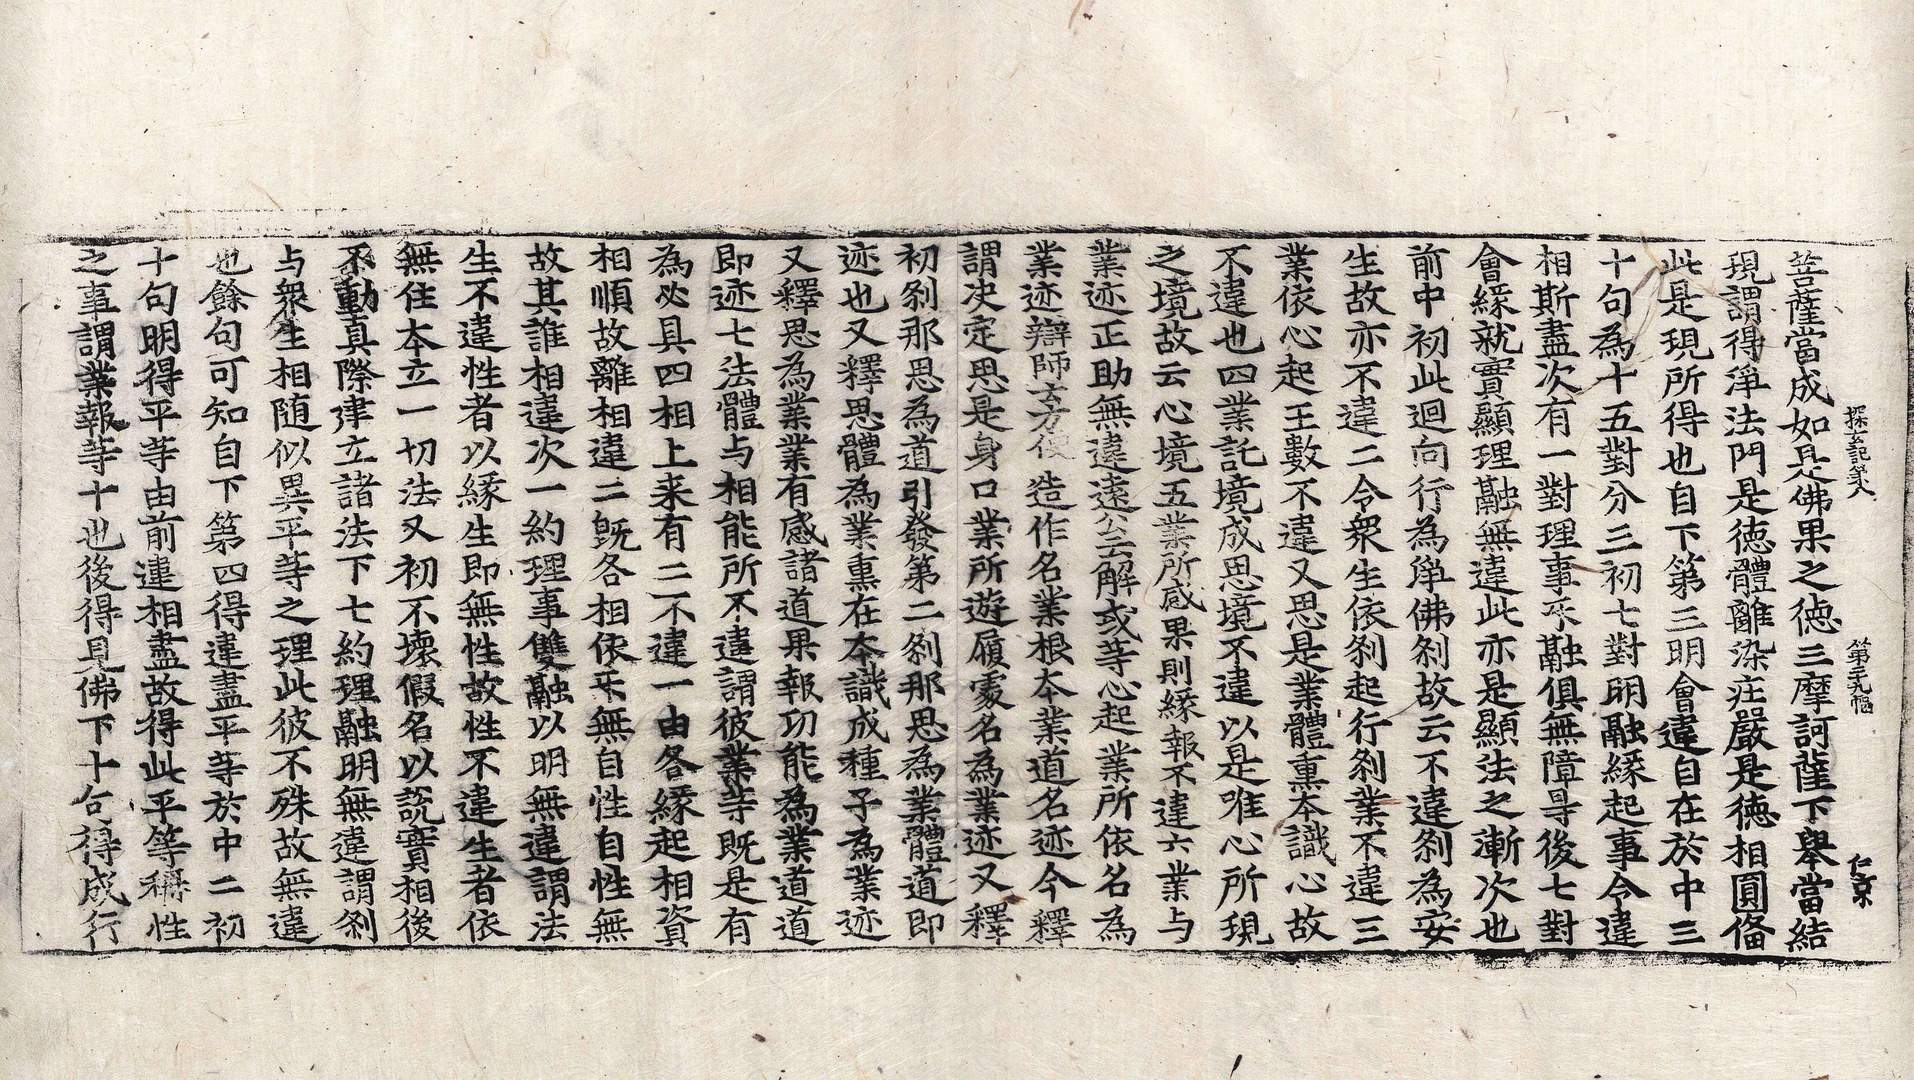 探玄記第八 第二十九幅 仁京
菩薩當成如是佛果之德三摩訶薩下舉當結
現謂得淨法門是德體離染莊嚴是德相圓俻
此是現所得也自下第三明會違自在於中三
十句為十五對分三初七對明融緣起事令違
相斯盡次有一對理事乐融俱無障㝵後七對
會緣就實顯理融無違此亦是顯法之漸次也
前中初此迴向行為淨佛刹故云不違刹為安
生故亦不違二令衆生依刹起行刹業不違三
業依心起王數不違又思是業體熏本識心故
不違也四業託境成思境不違以是唯心所現
之境故云心境五業所感果則緣報不違六業与
業迹正助無違遠公云解或等心起業所依名為
業迹辯師云方便造作名業根本業道名迹今釋
謂决定思是身口業所遊履處名為業迹又釋
初刹那思為道引發第二刹那思為業體道即
迹也又釋思體為業熏在本識成種子為業迹
又釋思為業業有感諸道果報功能為業道道
即迹七法體与相能所不違謂彼業等既是有
為必具四相上来有二不違一由各緣起相資
相順故離相違二旣各相依乐無自性自性無
故其誰相違次一約理事雙融以明無違謂法
生不違性者以緣生即無性故性不違生者依
無住本立一切法又初不壞假名以說實相後
不動真際建立諸法下七約理融明無違謂刹
与衆生相随似異平等之理此彼不殊故無違
也餘句可知自下第四得違盡平等於中二初
十句明得平等由前違相盡故得此平等稱性
之事謂業報等十也後得見佛下十句得成行